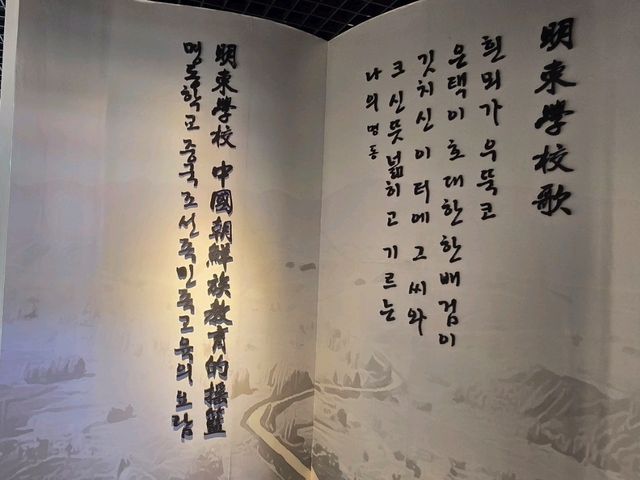 明東學校歌
흰뫼가 우뚝코
은택이 호대한 한배검이
깃치신 이 터에 그 씨와
크신 뜻 넓히고 기르는
나의 명동
明東學校 中國朝鮮族教育的搖籃
명동학교 중국조선족민족교육의 요람